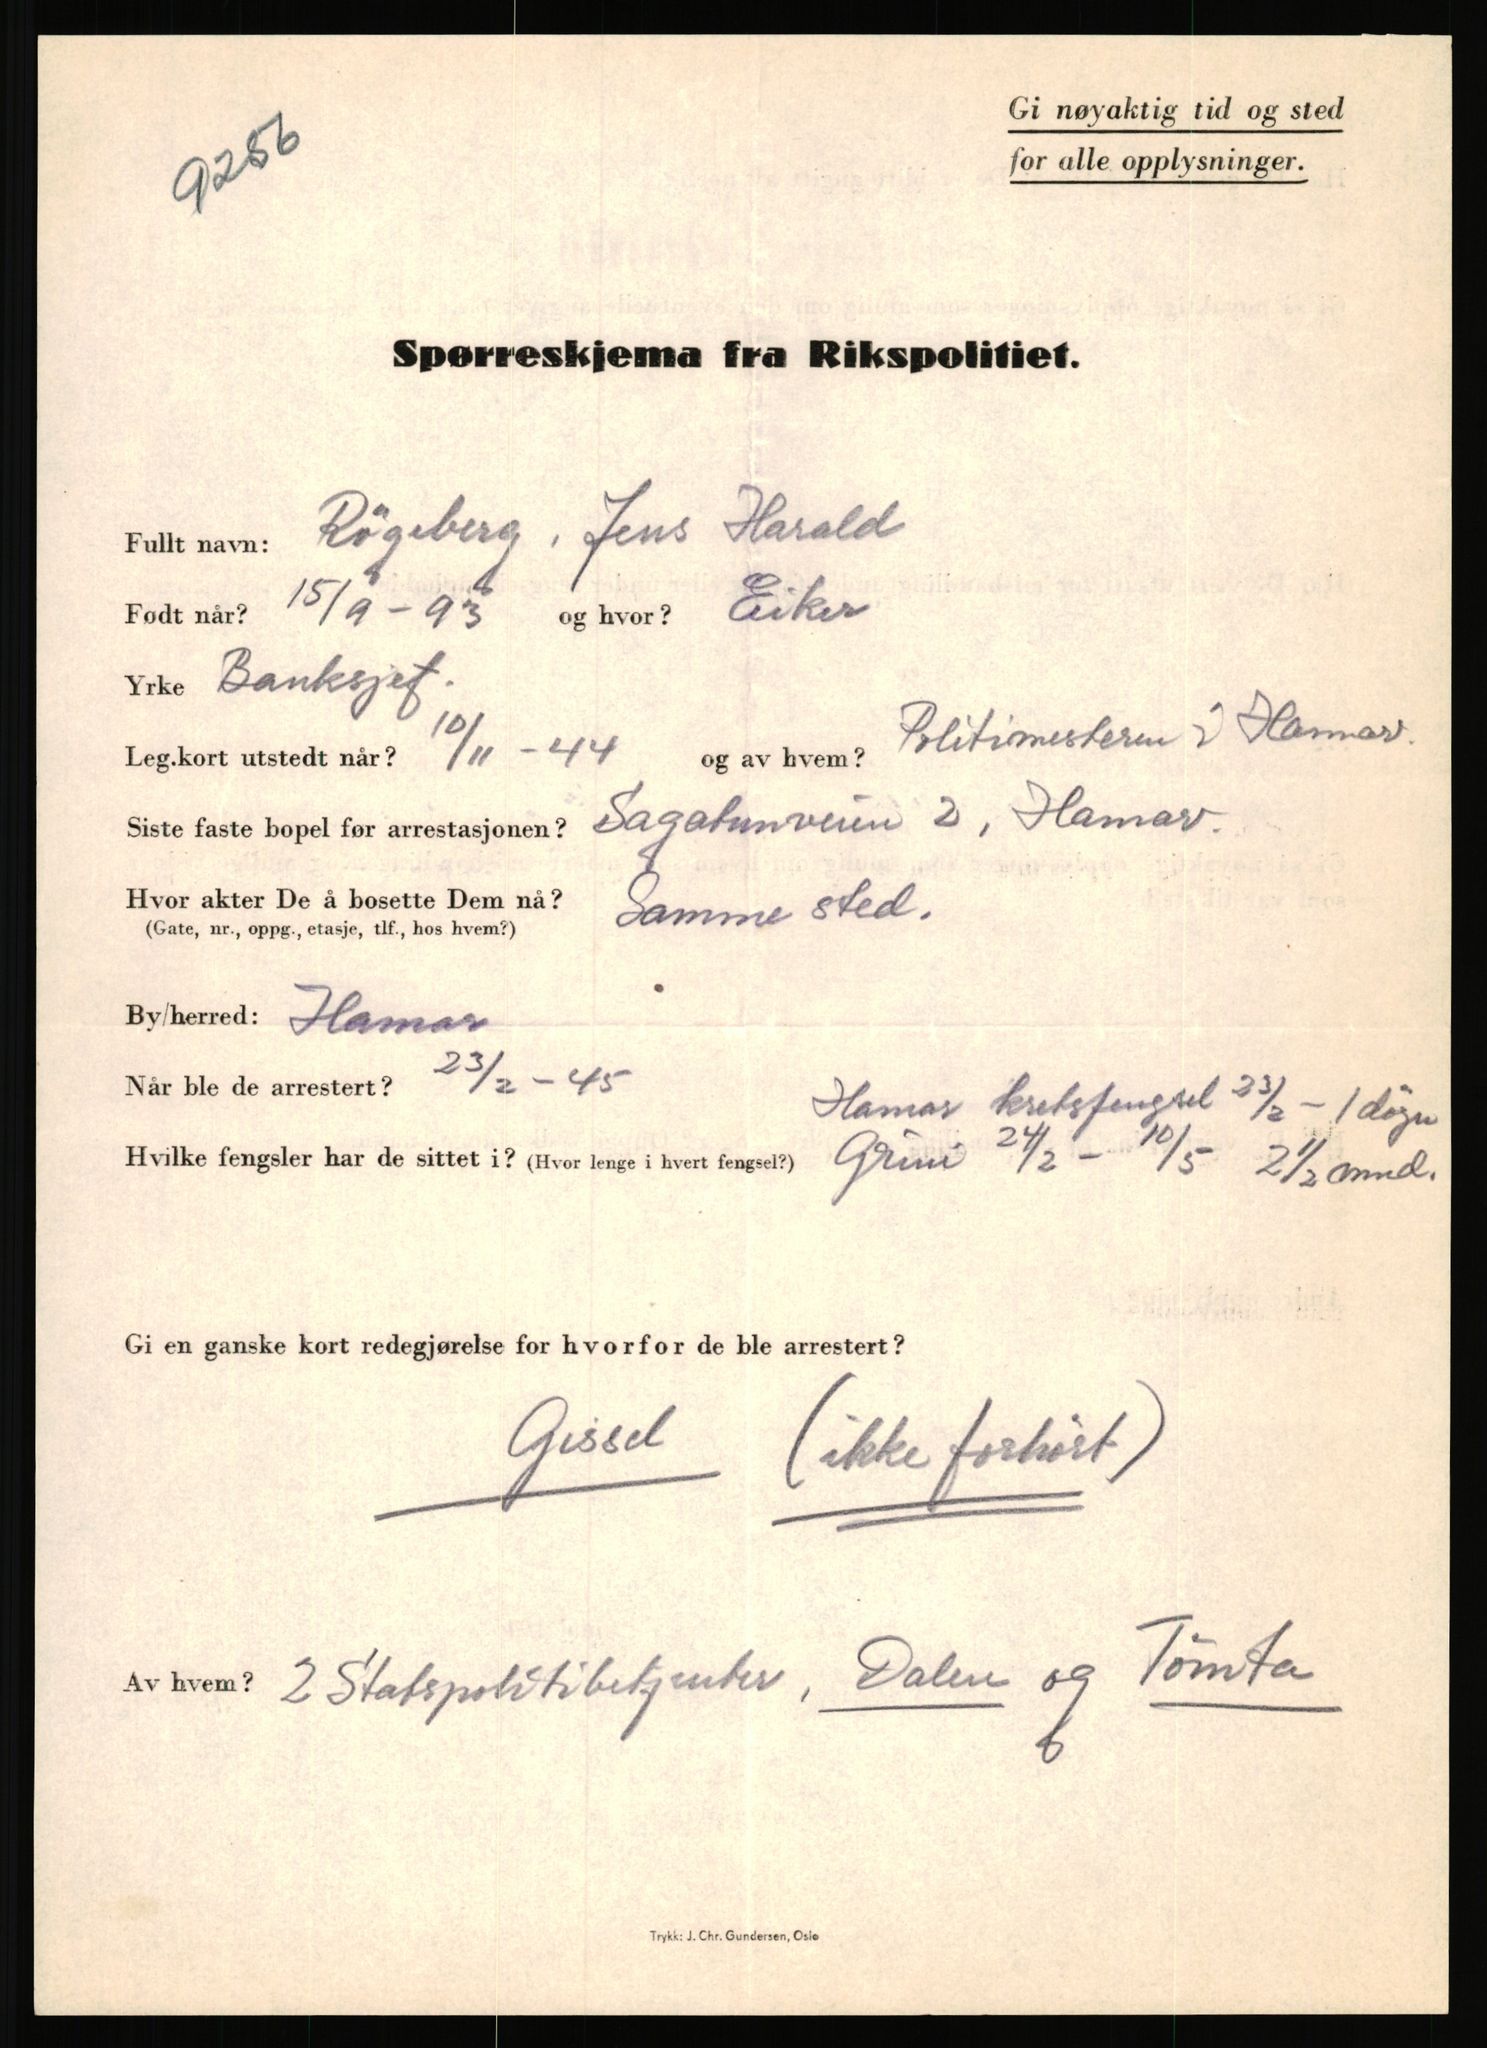 9256
Gi nøyaktig tid og sted
for alle opplysninger.
Spørreskjema fra Rikspolitiet.
Fullt navn: Rögeberg, Jens Harald
Født når? 15/9 - 93 og hvor? Eiker
Yrke Banksjef.
Leg.kort utstedt når? 10/11 - 44 og av hvem? Politimesteren i Hamar.
Siste faste bopel før arrestasjonen? Sagatunveien 2, Hamar.
Hvor akter De å bosette Dem nå? Samme sted.
(Gate, nr., oppg., etasje, tlf., hos hvem?)
By/herred: Hamar
Når ble de arrestert? 23/2 - 45
Hamar kretsfengsel 23/2 - 1 dögn
Hvilke fengsler har de sittet i? (Hvor lenge i hvert fengsel?) Grini 24/2 - 10/5 2 1/2 mnd.
Gi en ganske kort redegjørelse for hvorfor de ble arrestert?
Gissel (ikke forhört)
Av hvem? 2 Statspolitibetjenter, Dalen og Tömta
Trykk: J. Chr. Gundersen, Oslo